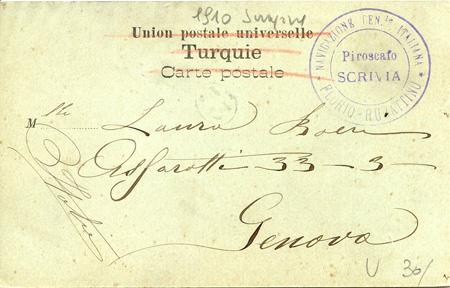 1910 Smyrne
Union postale universelle
Turquie
Carte postale
NAVIGAZIONE GEN.LE ITALIANA
Piroscafo
SCRIVIA
FLORIO-RUBATTINO
Mlle Laura
Assarotti 33-3
Genova
Italie
V 30/